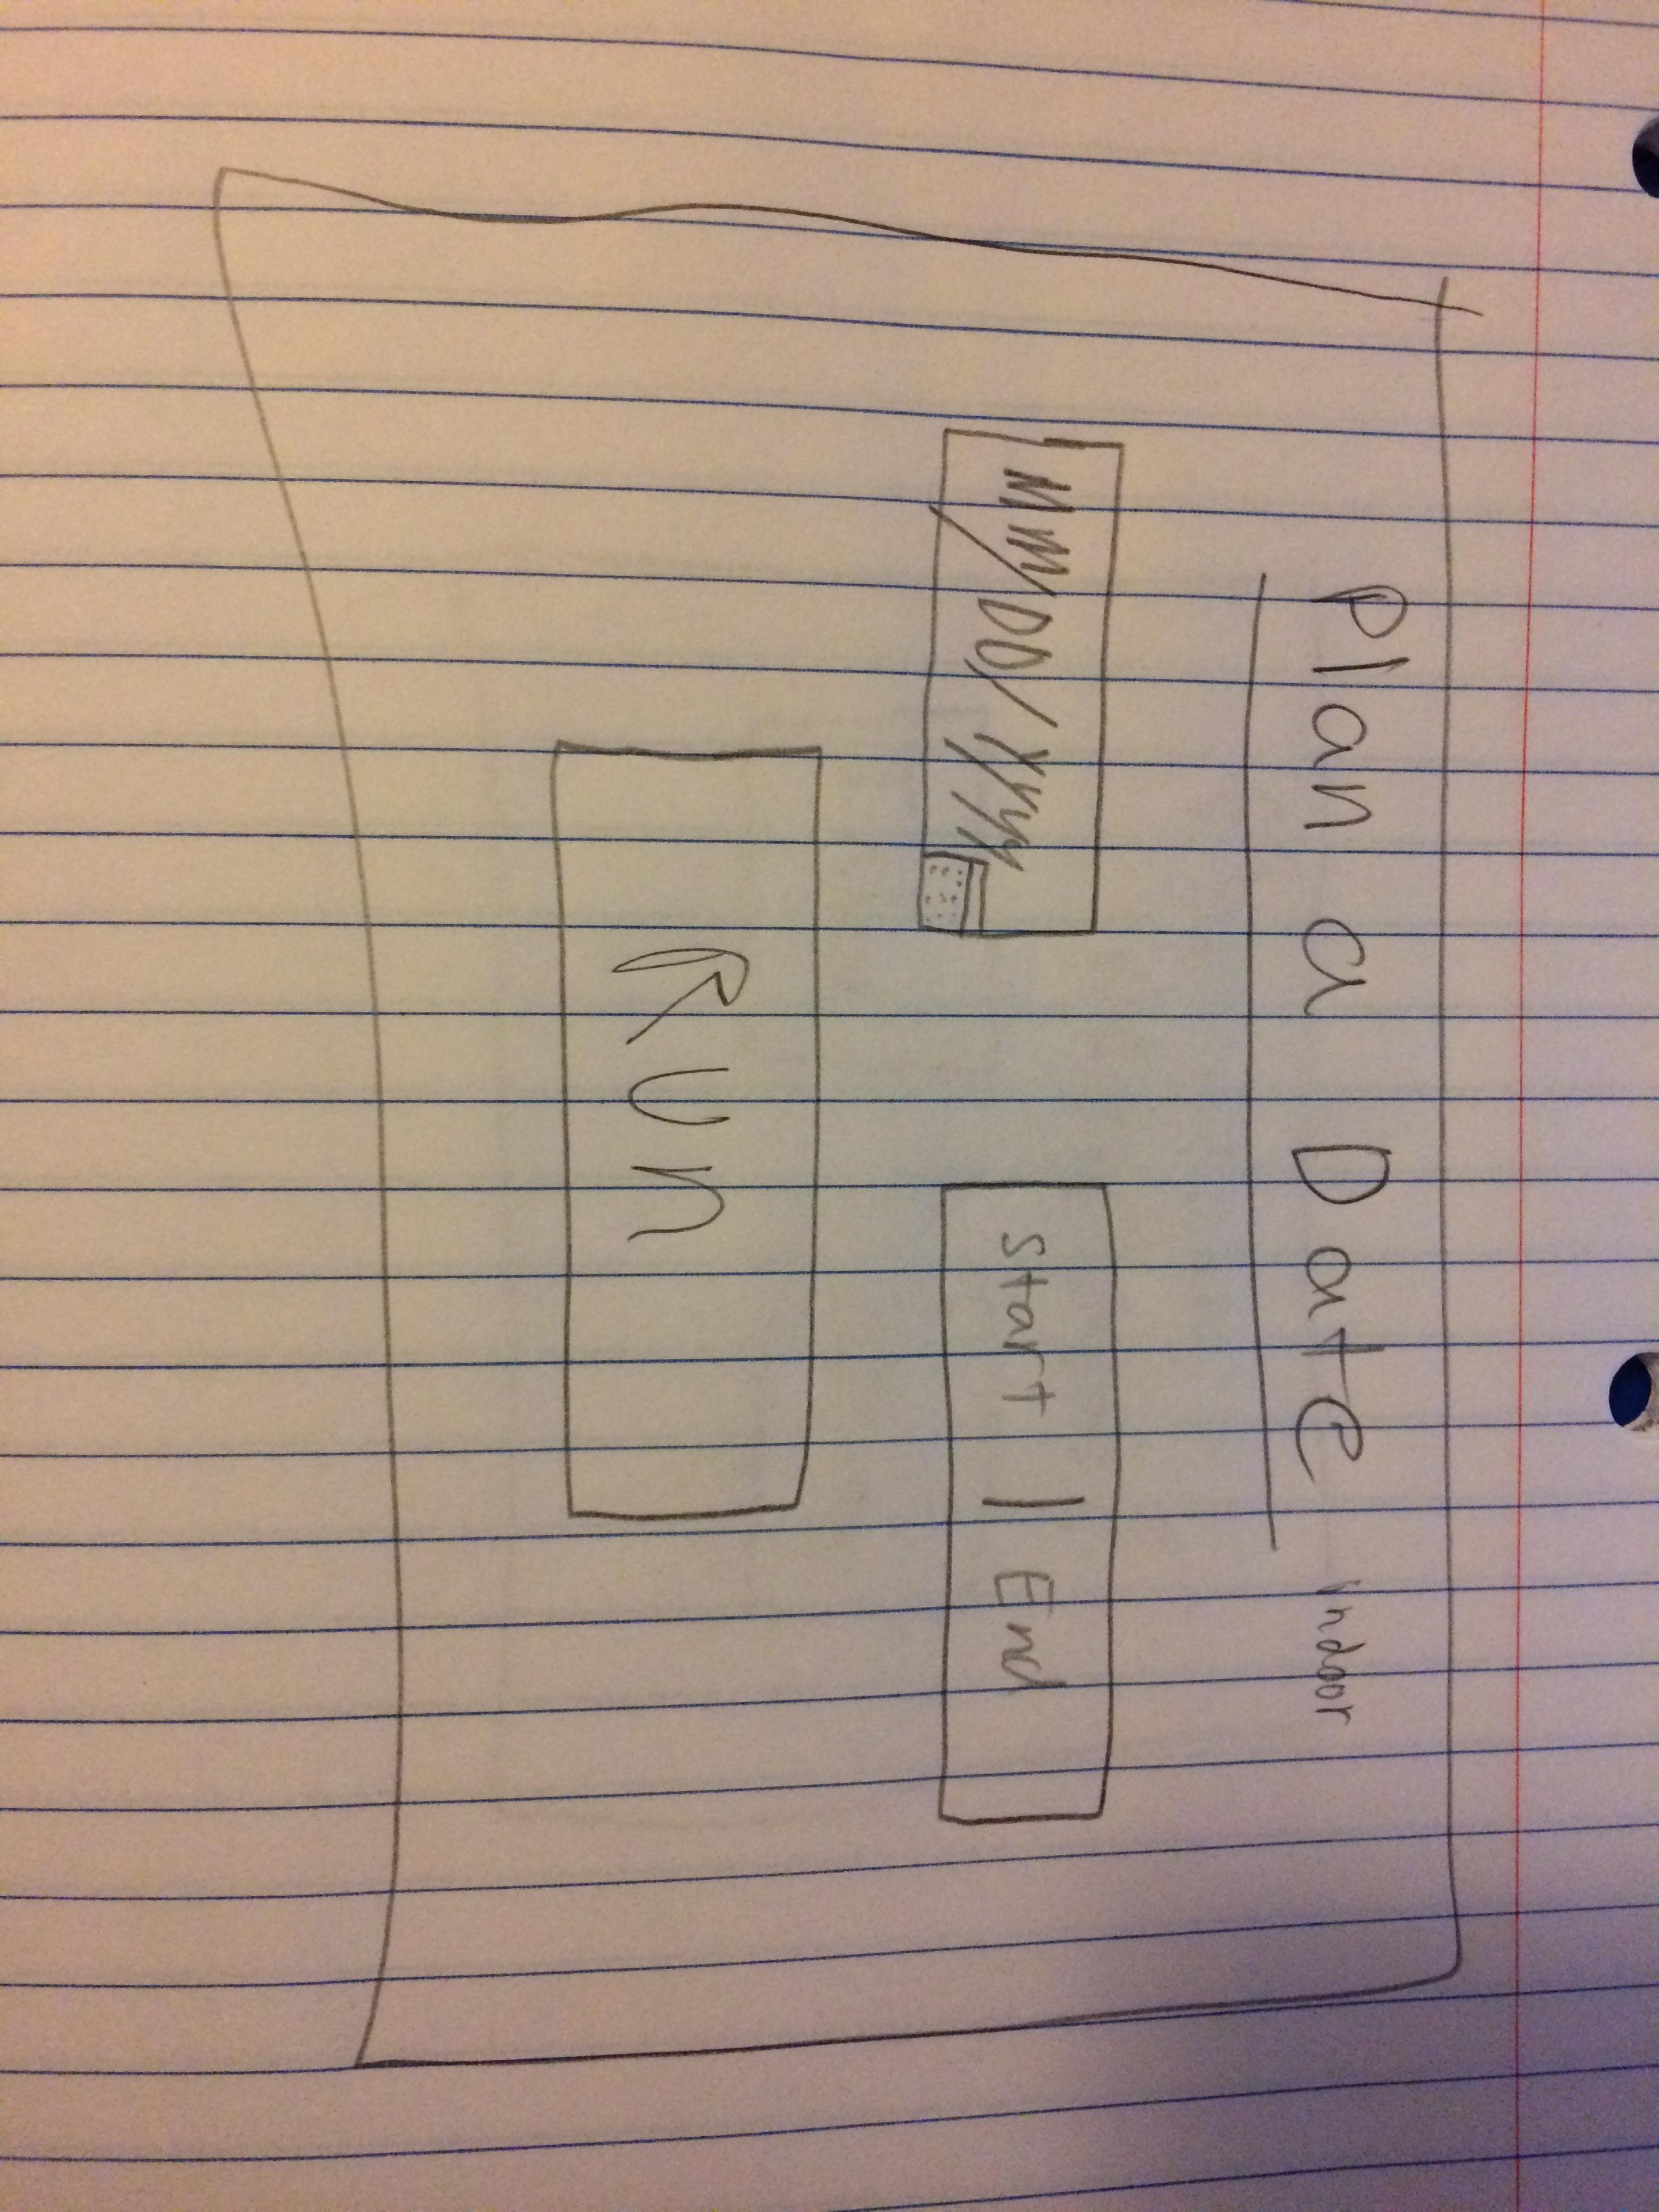 Plan a Date indoor
MM/DD/YYYY
Start | End
Run